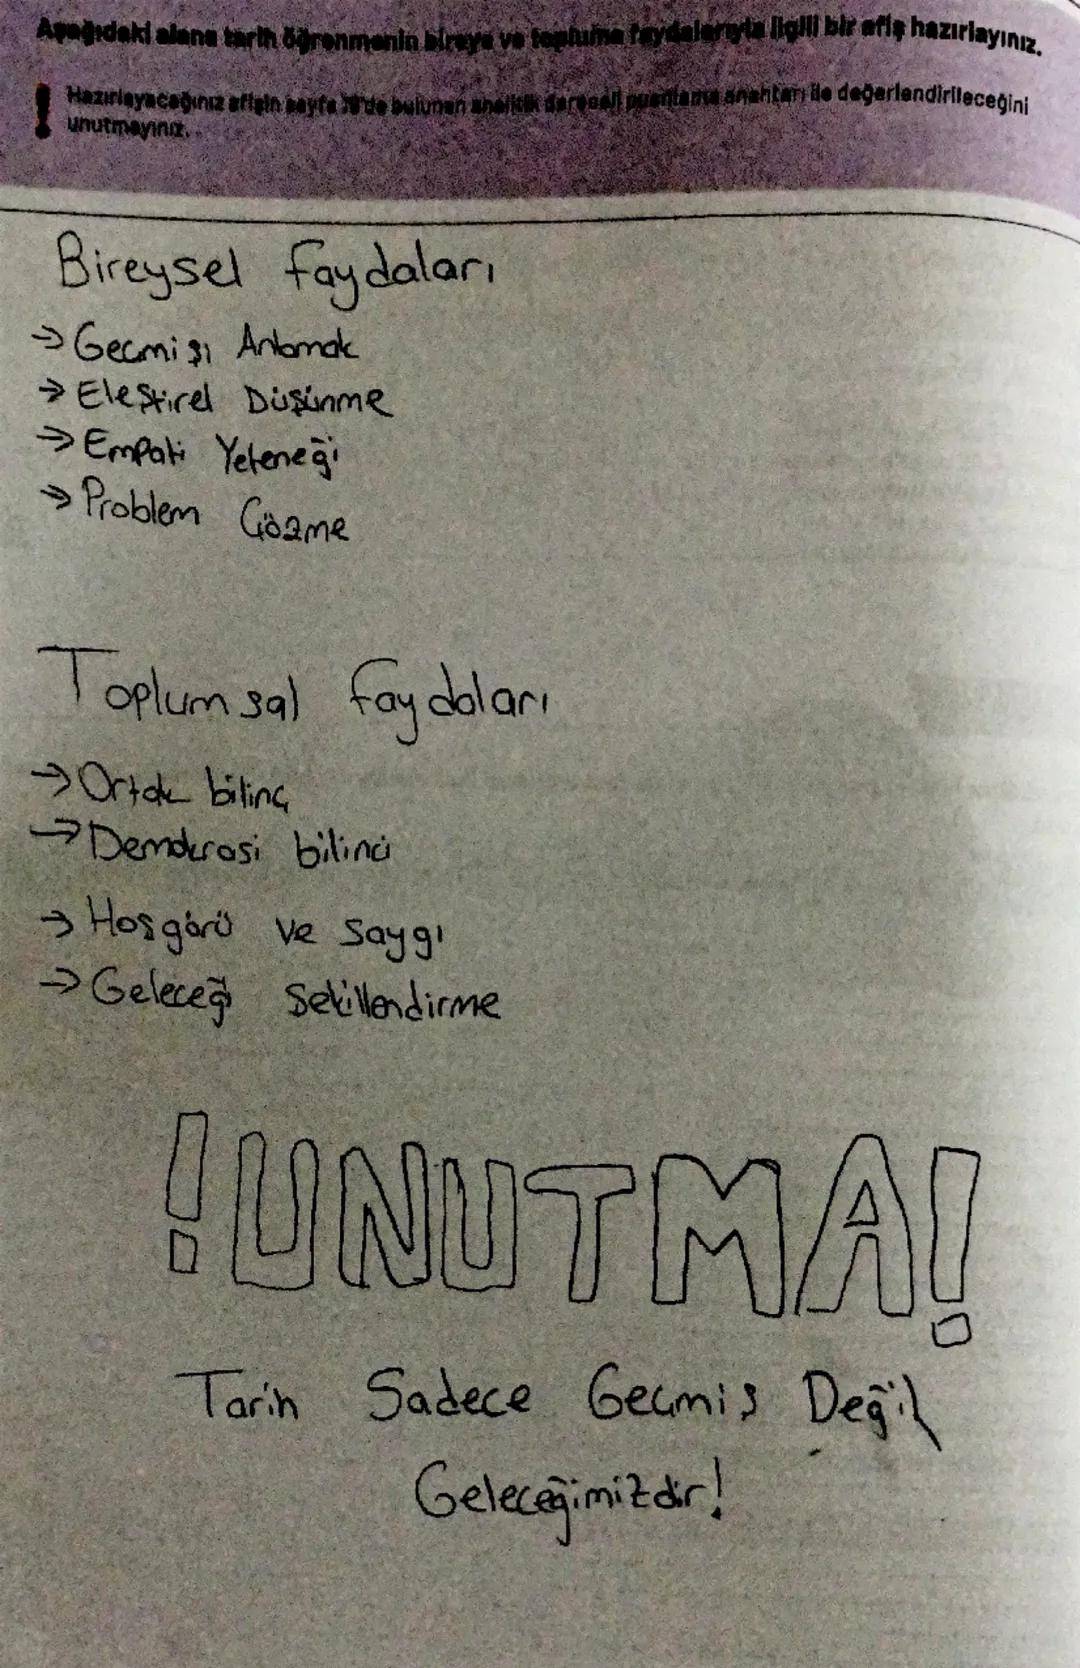 Aşağıdaki alana tarih öğrenmenin bireye ve topluma faydalarıyla ilgili bir afiş hazırlayınız.
! Hazırlayacağınız afişin sayfa 19'da bulunan analitik dereceli puanlama anahtarı ile değerlendirileceğini
unutmayınız.
Bireysel faydaları
→ Geçmişi Anlamak
→ Eleştirel Düşünme
→ Empati Yeteneği
→ Problem Çözme
Toplumsal faydaları
→ Ortak bilinç
→ Demokrasi bilinci
→ Hoşgörü ve saygı
→ Geleceği Şekillendirme
!UNUTMA!
Tarih Sadece Geçmiş Değil
Geleceğimizdir!